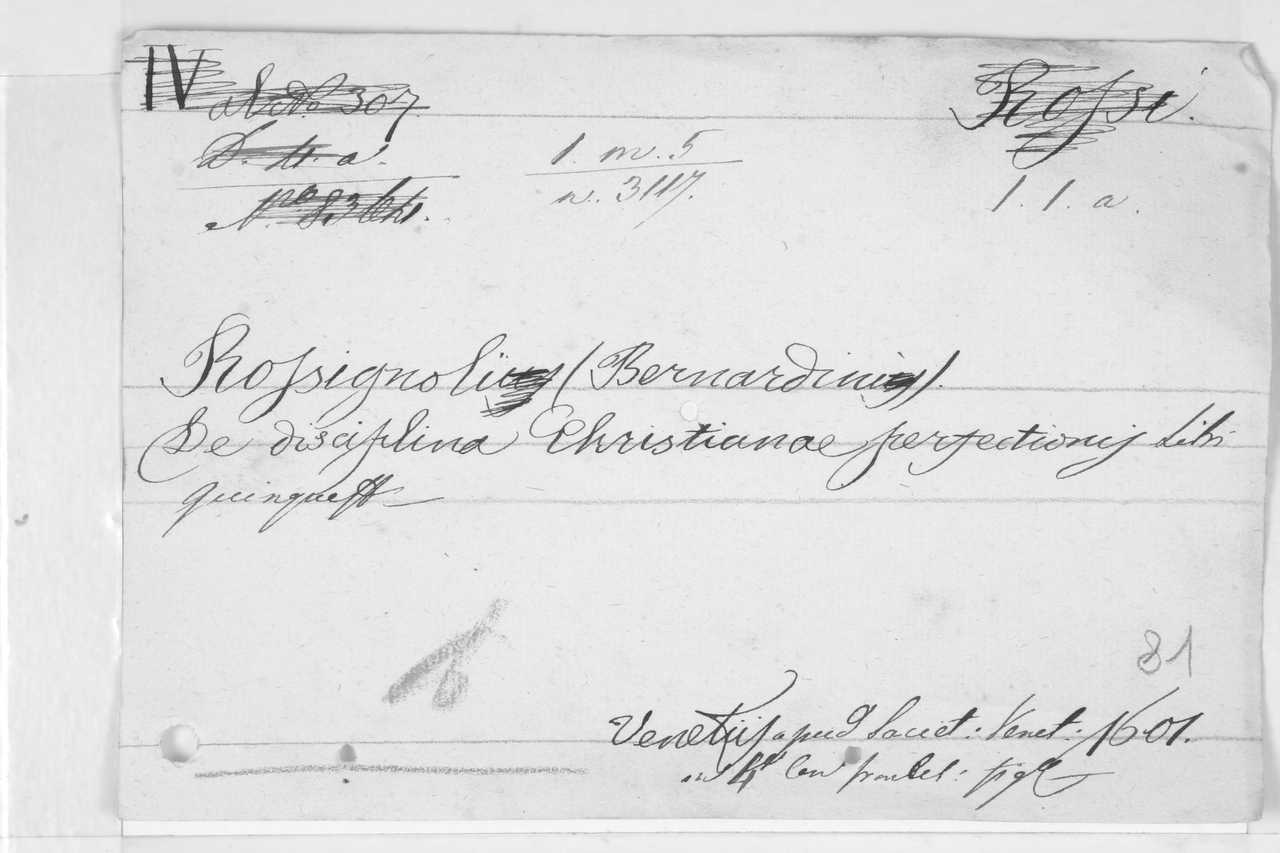 IV
307
Rossi.
D. tt. a.
1. m. 5
n. 3117.
1. 1. a.
Rossignoli (Bernardini).
De disciplina Christianae perfectionis Libri
quinque
81
Venetiis apud Societ: Venet: 1601.
in 4° Con frontes: fig.